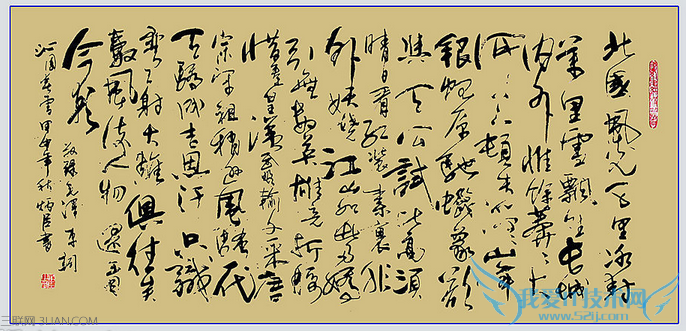 北國風光千里冰封
萬里雪飄望長城
内外惟餘莽莽大
河上下頓失滔滔山舞
銀蛇原馳蠟象欲
與天公試比高須
晴日看紅裝素裹分
外妖嬈江山如此多嬌
引無數英雄競折腰
惜秦皇漢武略輸文采唐
宗宋祖稍遜風騷一代
天驕成吉思汗只識
彎弓射大雕俱往矣
數風流人物還看
今朝
毛澤東詞
沁園春雪甲午年秋炳臣書
三联网 3LIAN.COM
我爱IT技术网
www.52ij.com